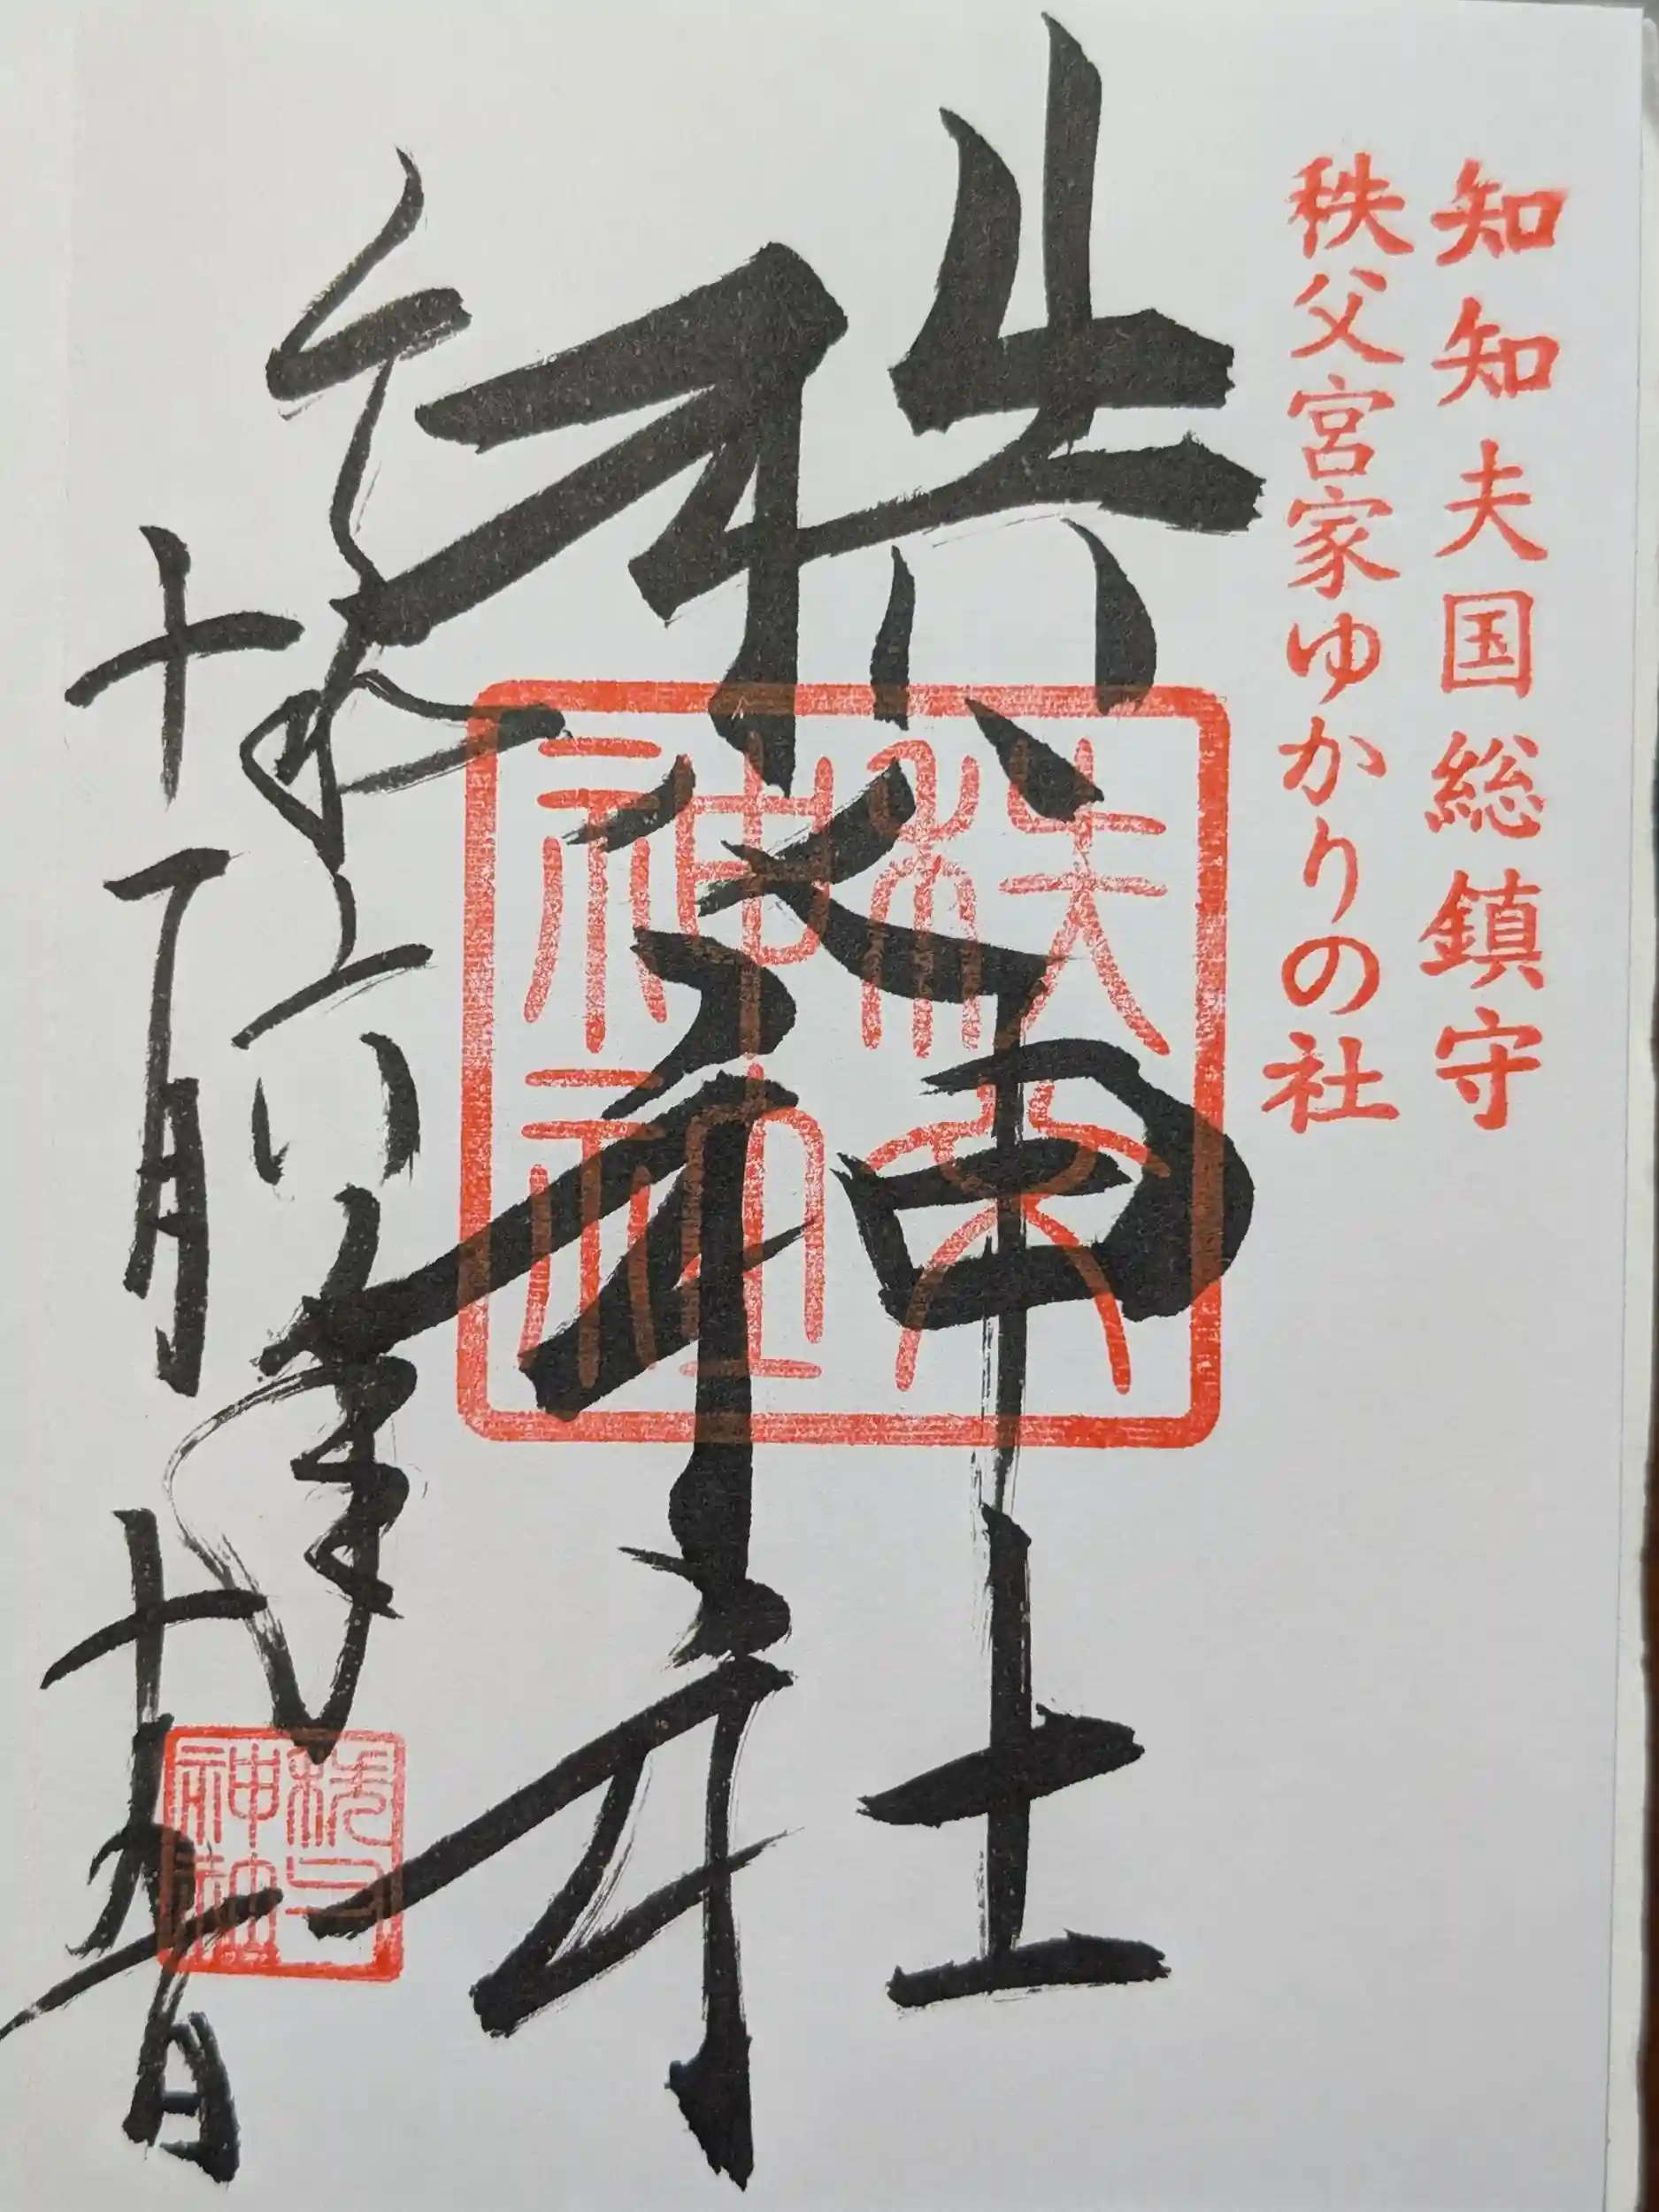 知知夫国総鎮守
秩父宮家ゆかりの社
秩父神社
秩父
神社
令和六年
十一月十五日